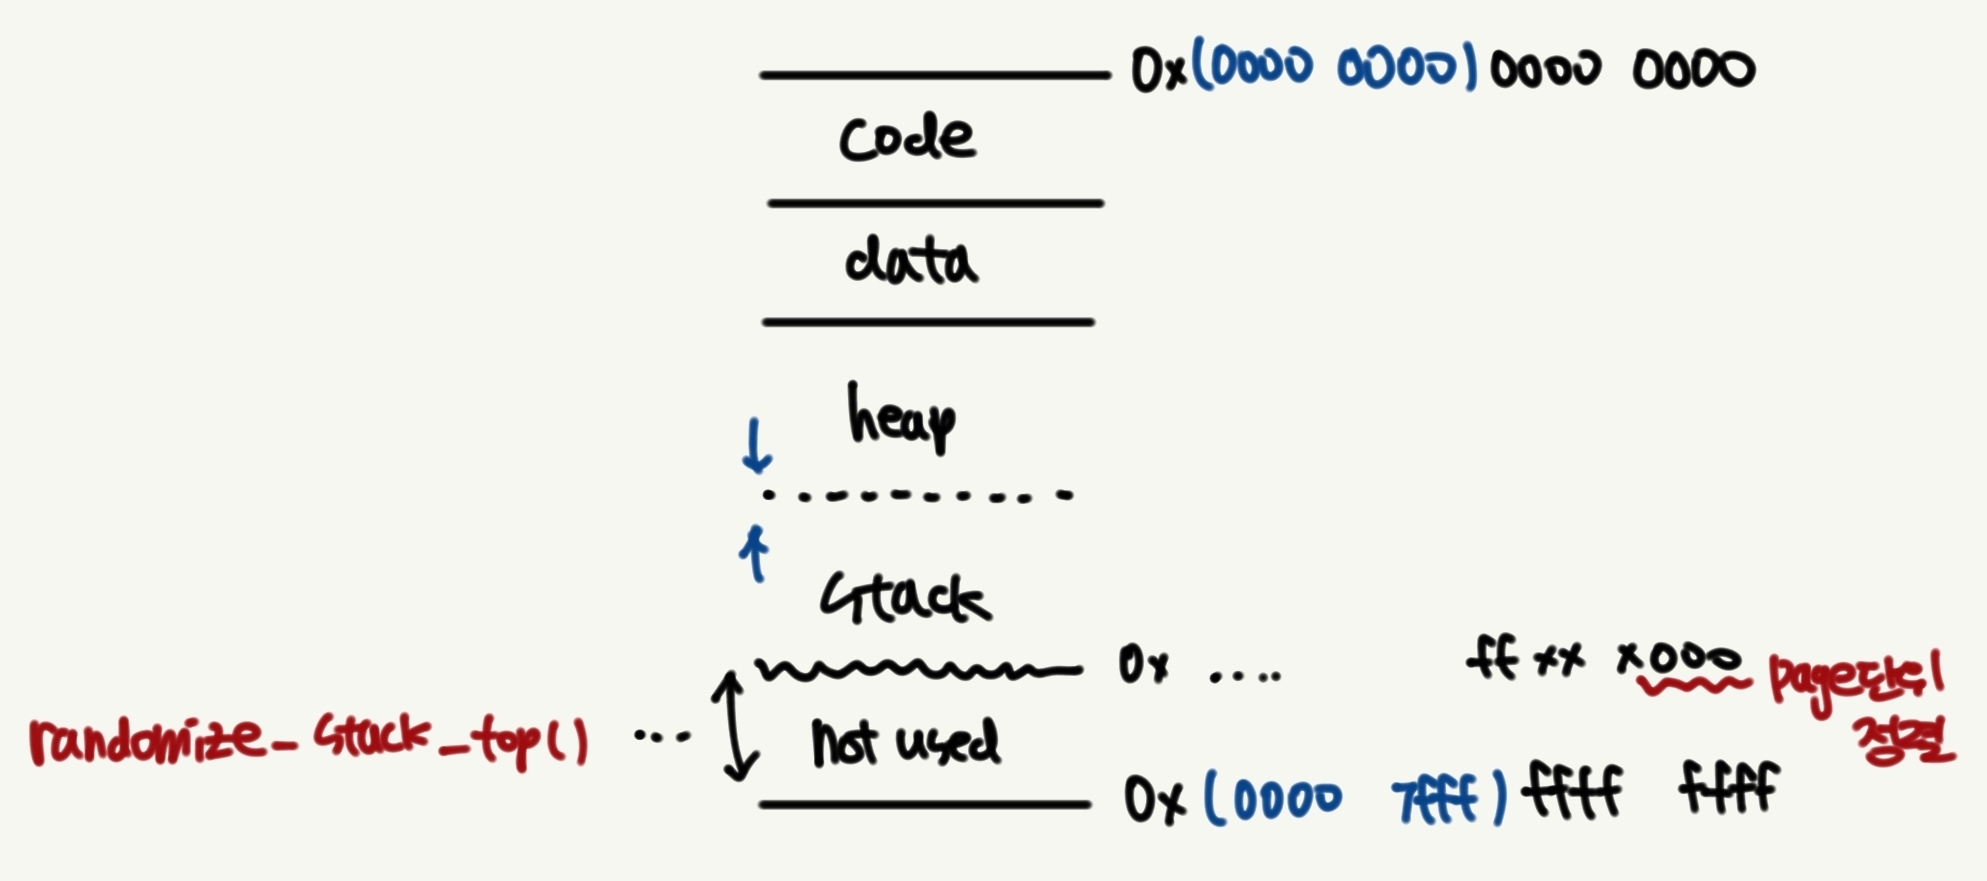 0x(0000 0000) 0000 0000
code
data
heap
stack
0x .... ffxx x000 page단위
정렬
randomize_stack_top() ... not used
0x(0000 7fff) ffff ffff